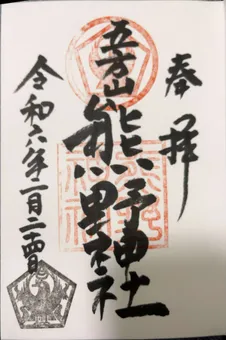 奉拝
五方山熊野神社
令和六年一月二十四日